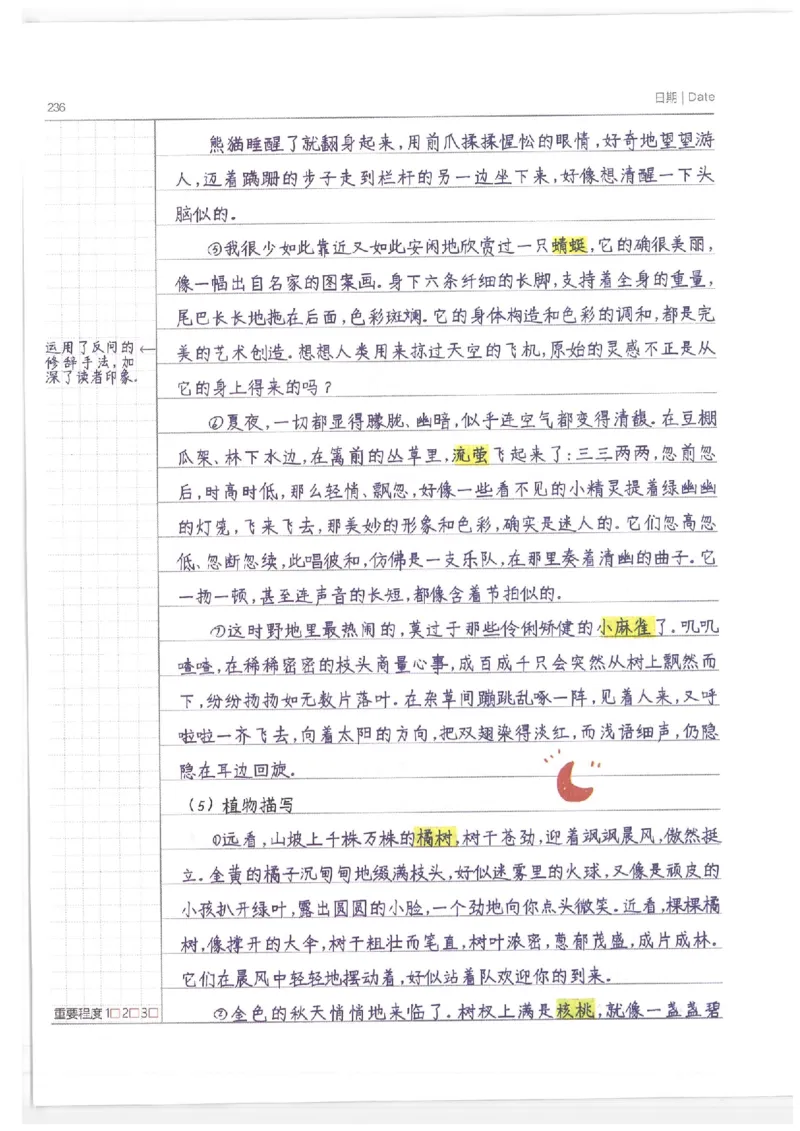 236
日期 | Date
熊猫睡醒了就翻身起来,用前爪揉揉惺忪的眼情,好奇地望望游
人,迈着蹒跚的步子走到栏杆的另一边坐下来,好像想清醒一下头
脑似的。
⑤我很少如此靠近又如此安闲地欣赏过一只蜻蜓,它的确很美丽,
像一幅出自名家的图案画。身下六条纤细的长脚,支持着全身的重量,
尾巴长长地拖在后面,色彩斑斓。它的身体构造和色彩的调和,都是完
运用了反问的
修辞手法,加
深了读者印象.
美的艺术创造。想想人类用来掠过天空的飞机,原始的灵感不正是从
它的身上得来的吗?
⑥夏夜,一切都显得朦胧、幽暗,似乎连空气都变得清馥。在豆棚
瓜架、林下水边,在篱前的丛草里,流萤飞起来了:三三两两,忽前忽
后,时高时低,那么轻情、飘忽,好像一些看不见的小精灵提着绿幽幽
的灯笼,飞来飞去,那美妙的形象和色彩,确实是迷人的。它们忽高忽
低、忽断忽续,此唱彼和,仿佛是一支乐队,在那里奏着清幽的曲子。它
一扬一顿,甚至连声音的长短,都像含着节拍似的。
⑦这时野地里最热闹的,莫过于那些伶俐矫健的小麻雀了。叽叽
喳喳,在稀稀密密的枝头商量心事,成百成千只会突然从树上飘然而
下,纷纷扬扬如无数片落叶。在杂草间蹦跳乱啄一阵,见着人来,又呼
啦啦一齐飞去,向着太阳的方向,把双翅染得淡红,而浅语细声,仍隐
隐在耳边回旋。
(5)植物描写
①远看,山坡上千株万株的橘树,树干苍劲,迎着飒飒晨风,傲然挺
立。金黄的橘子沉甸甸地缀满枝头,好似迷雾里的火球,又像是顽皮的
小孩扒开绿叶,露出圆圆的小脸,一个劲地向你点头微笑。近看,棵棵橘
树,像撑开的大伞,树干粗壮而笔直,树叶浓密,葱郁茂盛,成片成林。
它们在晨风中轻轻地摆动着,好似站着队欢迎你的到来。
②金色的秋天悄悄地来临了。树杈上满是核桃,就像一盏盏碧
重要程度 1□ 2□ 3□